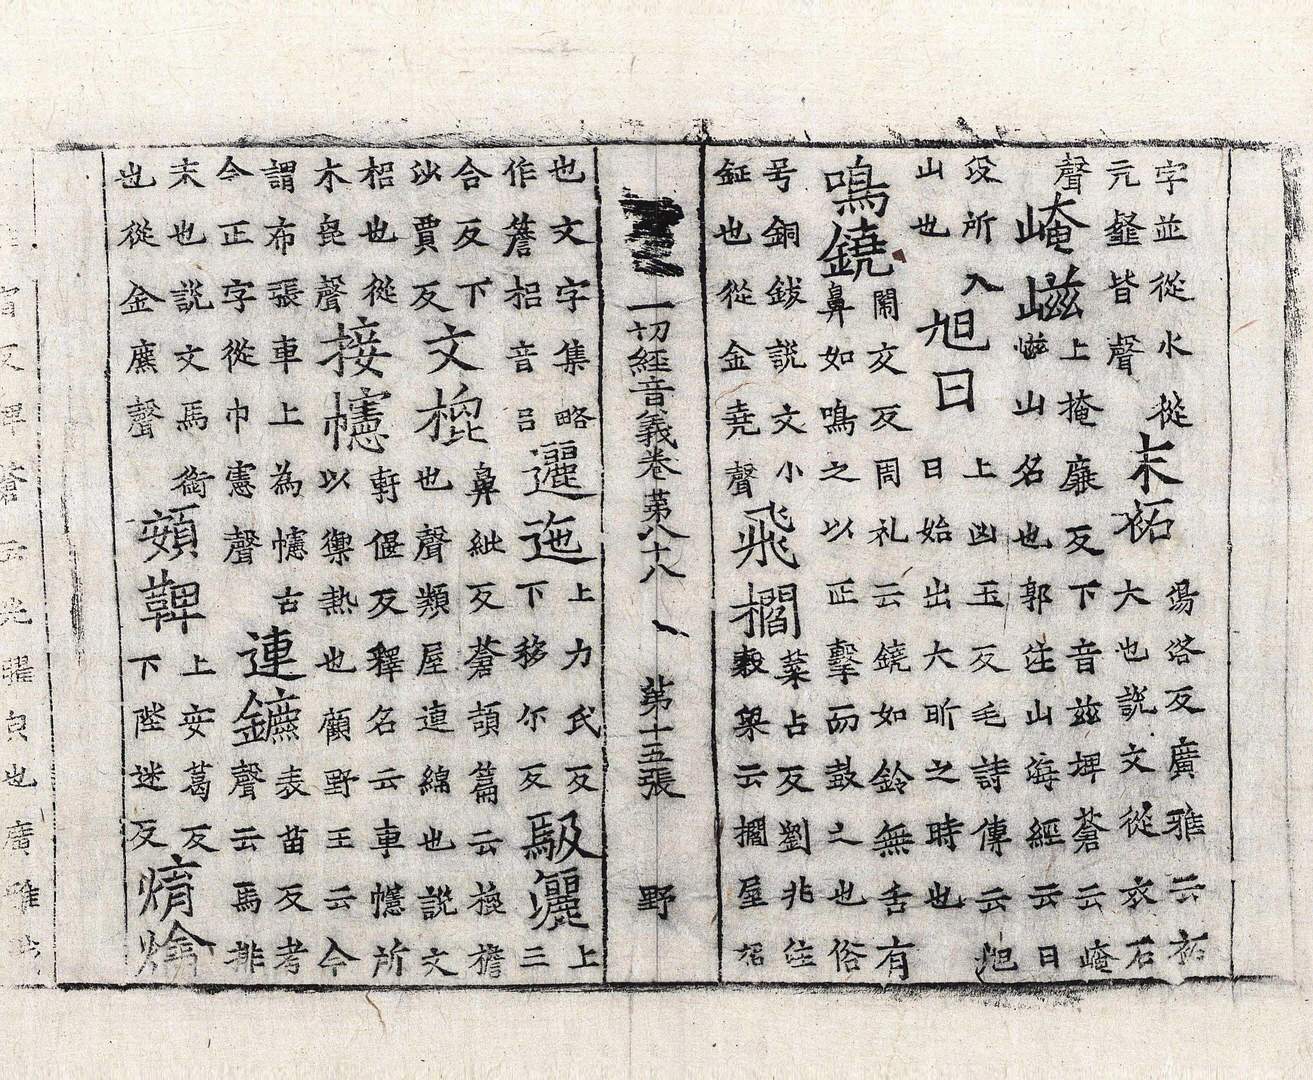 字並從水從元韰皆聲末祏湯洛反廣雅云祏大也說文從衣石
聲崦嵫上掩廉反下音茲埤蒼云崦嵫山名也郭注山海經云日
沒所入山也旭日上凶玉反毛詩傳云旭日始出大昕之時也
鳴鐃鬧交反周礼云鐃如鈴無舌有鼻如鳴之以正擊而鼓之也俗
号銅鈸說文小鉦也從金堯聲飛擱菜占反劉兆注穀梁云擱屋梠
一切經音義卷第八十八 第十五張 野
也文字集略作簷梠音呂邐迤上力氏反下移尔反馺儷上三
合反下沙賈反文㮰鼻紕反蒼頡篇云㮰檐也聲類屋連綿也說文
梠也從木毘聲接幰軒偃反釋名云車幰所以禦熱也顧野王云今
謂布張車上為幰古今正字從巾憲聲連鑣表苗反考聲云馬排
末也說文馬銜也從金麃聲頞鞞上安葛反下陛迷反焇